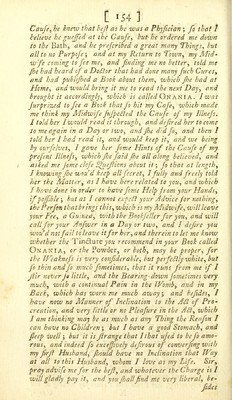 [ 154 ]
Cause, he knew that best as he was a Physician; so that I
believe he guessed at the Cause, but he ordered me down
to the Bath, and he prescribed a great many Things, but
all to no Purpose; and at my Return to Town, my Mid-
wife coming to see me, and finding me no better, told me
she had heard of a Doctor that had done many such Cures,
and had published a Book about them, which she had at
Home, and would bring it me to read the next Day, and
brought it accordingly, which is called ONANIA. I was
surprized to see a Book that so hit my Case, which made
me think my Midwife suspected the Cause of my Illness.
I told her I would read it through, and desired her to come
to me again in a Day or two, and she did so, and then I
told her I had read it, and would keep it, and we being
by ourselves, I gave her some Hints of the Cause of my
present Illness, which she said she all along believed, and
asked me some close Questions about it; so that at length,
I knowing she wou'd keep all secret, I fully and freely told
her the Matter, as I have here related to you, and which
I have done in order to have some Help from your Hands,
if possible; but as I cannot expect your Advice for nothing,
the Person that brings this, which is my Midwife, will leave
your Fee, a Guinea, with the Bookseller for you, and will
call for your Answer in a Day or two, and I desire you
wou'd not fail to leave it for her, and therein to let me know
whether the Tincture you recommend in your Book called
ONANIA, or the Powder, or both, may be proper, for
the Weakness is very considerable, but perfectly white, but
so thin and so much sometimes, that it runs from me if I
stir never so little, and the Bearing-down sometimes very
much, with a continual Pain in the Womb, and in my
Back, which has wore me much away; and besides, I
have now no Manner of Inclination to the Act of Pro-
creation, and very little or no Pleasure in the Act, which
I am thinking may be as much as any Thing the Reason I
can have no Children; but I have a good Stomach, and
sleep well; but it is strange that I that used to be so amo-
rous, and indeed so excessively desirous of conversing with
my first Husband, should have no Inclination that Way
at all to this Husband, whom I love as my Life. Sir,
pray advise me for the best, and whatever the Charge is I
will gladly pay it, and you shall find me very liberal, be-
sides